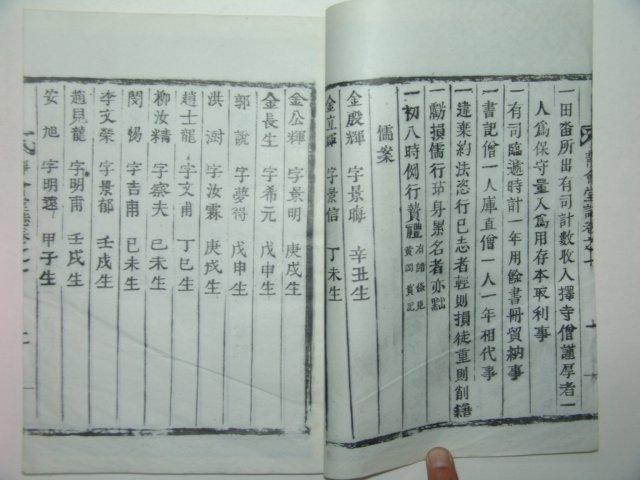 一田畓所出有司計數收入擇寺僧謹厚者一
人爲保守量入爲用存本取利事
一有司臨遞時計一年用餘書冊貿納事
一書記僧一人庫直僧一人一年相代事
一違棄約法恣行已志者輕則損徒重則削籍
一虧損儒行玷身累名者亦黜
一初八時例行贄禮
儒案
金殷輝 字景晦 辛丑生
金立輝 字景信 丁未生
金公輝 字景明 庚戌生
金長生 字希元 戊申生
郭說 字夢得 戊申生
洪澍 字汝霖 庚戌生
趙士龍 字文甫 丁巳生
柳汝精 字察夫 己未生
閔惕 字吉甫 己未生
李文榮 字景郁 壬戌生
趙見龍 字明甫 壬戌生
安旭 字明遠 甲子生